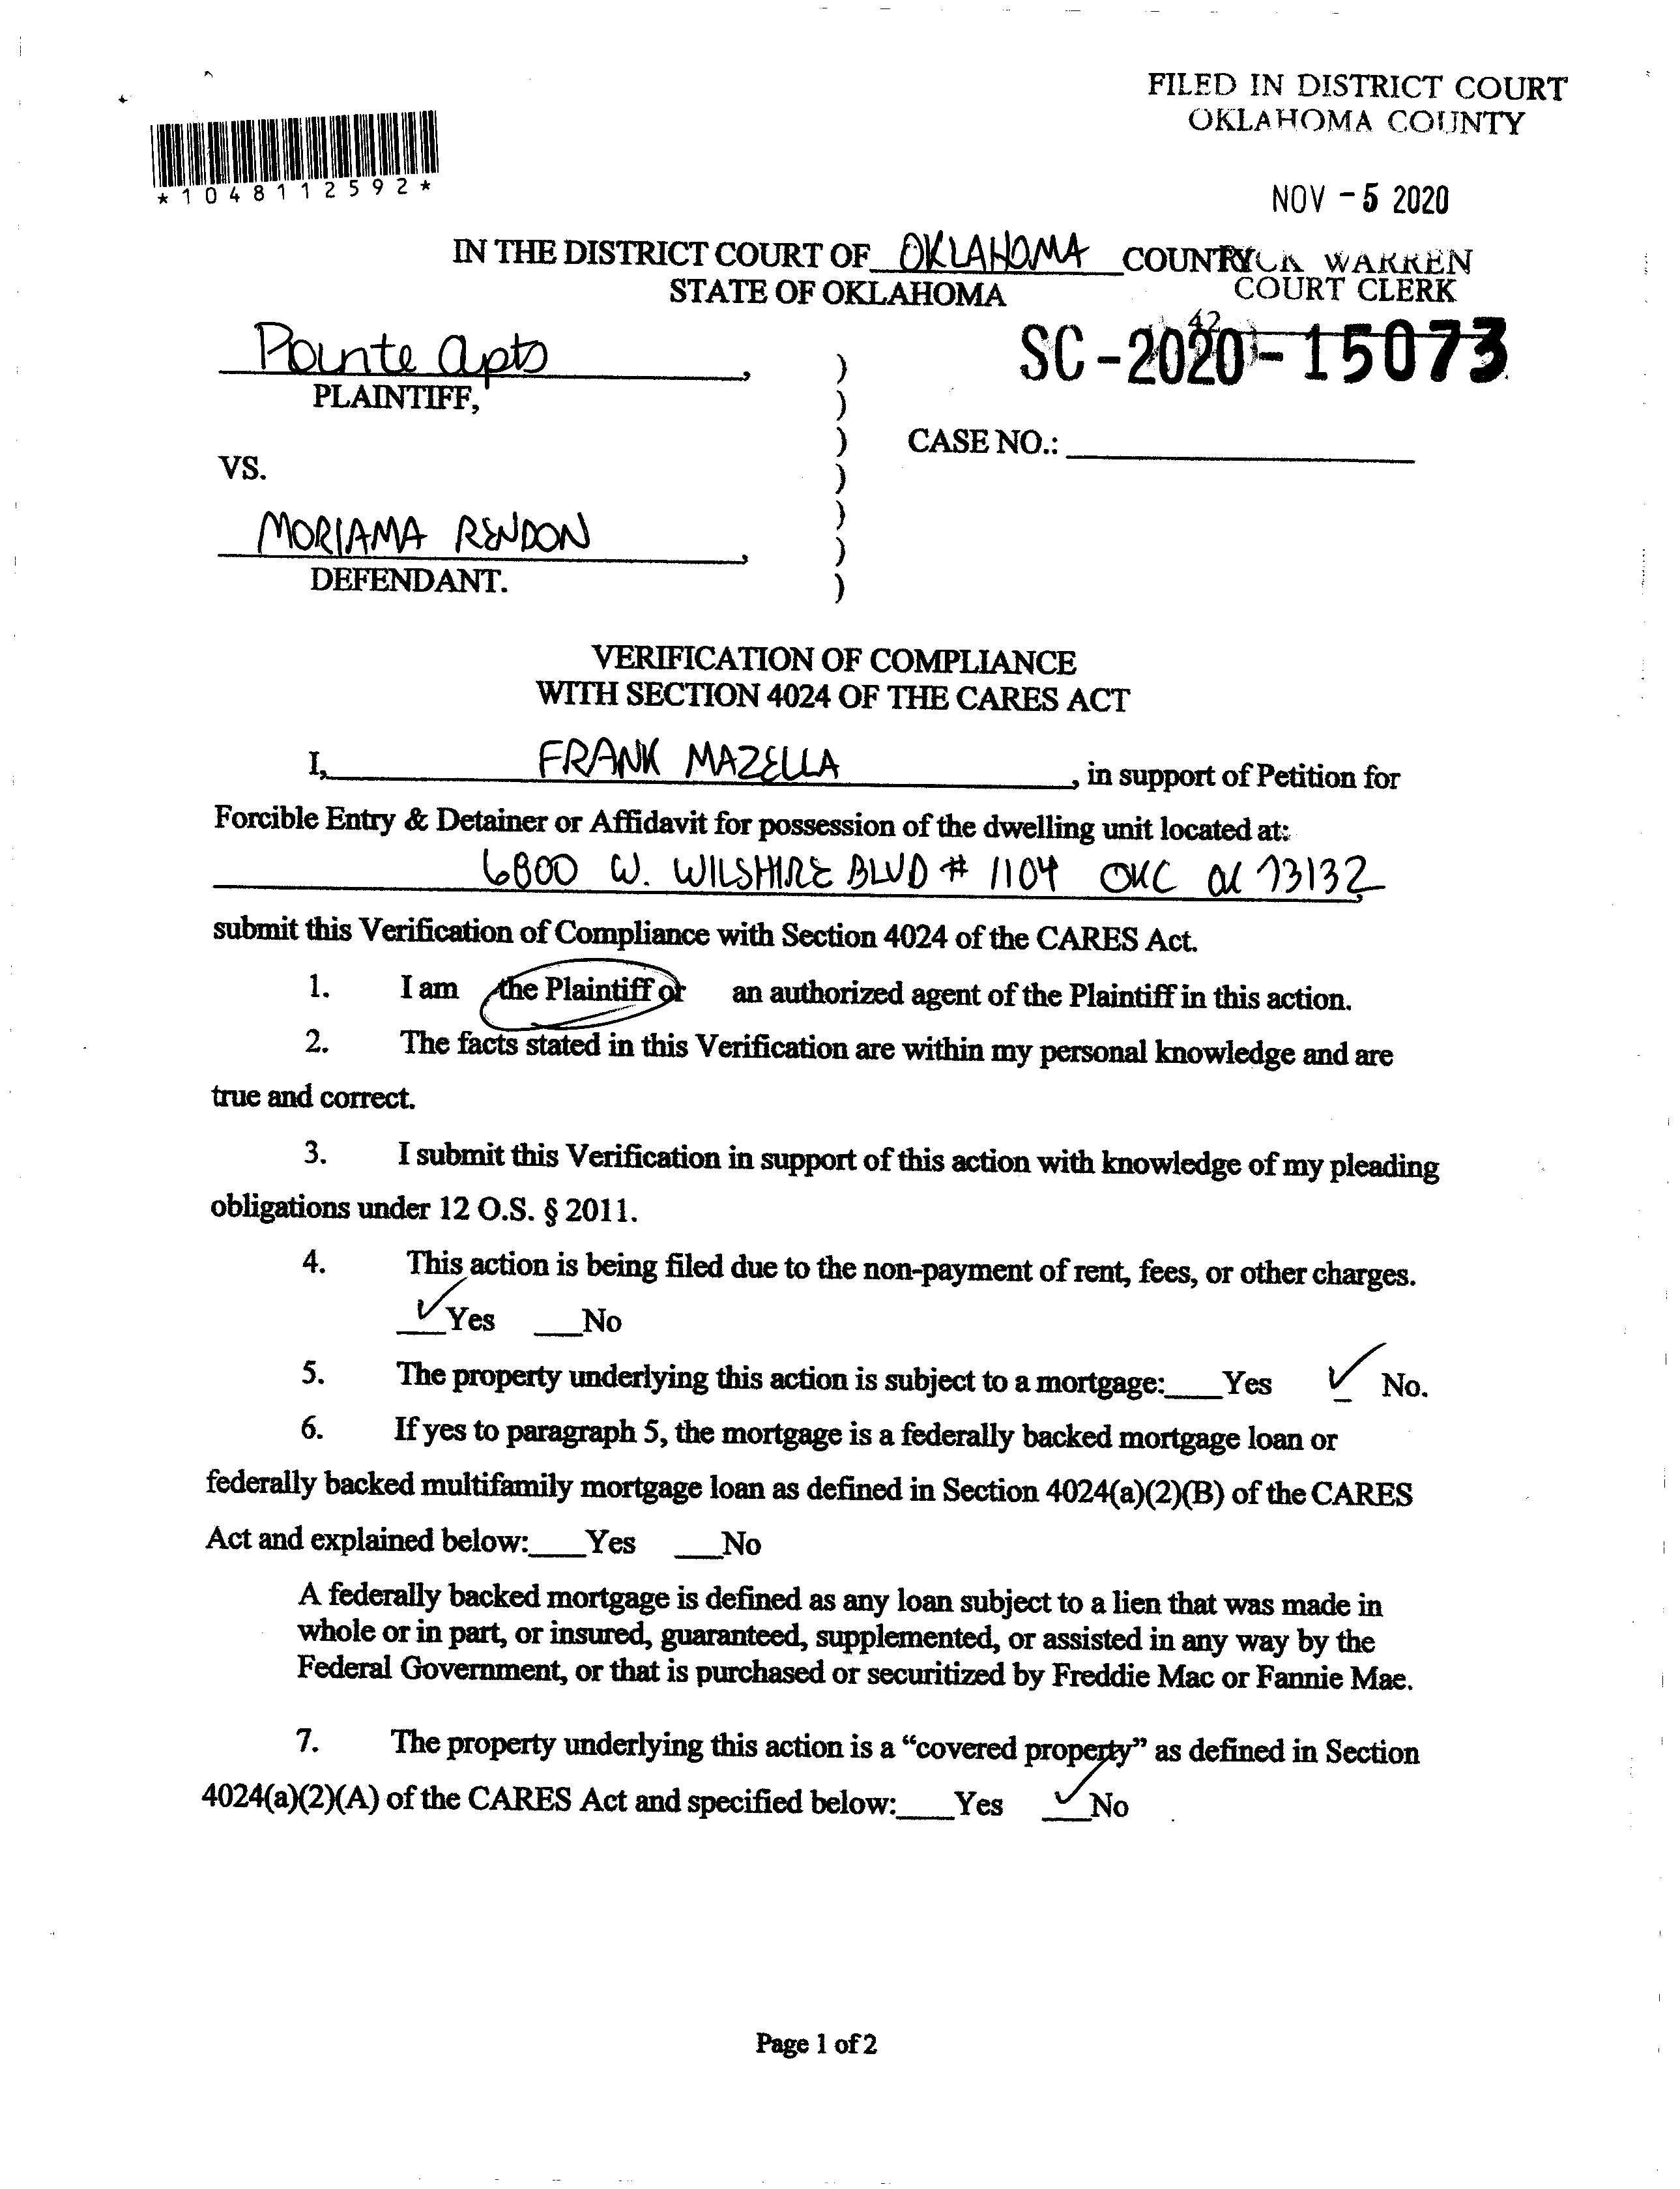 FILED IN DISTRICT COURT
OKLAHOMA COUNTY
*1048112592*
NOV - 5 2020
IN THE DISTRICT COURT OF OKLAHOMA COUNTY
WARREN
STATE OF OKLAHOMA
COURT CLERK
42
SC-2020-15073
Pointe Apts,
PLAINTIFF,
CASE NO.:
VS.
MORIAMA RENDON,
DEFENDANT.
)
)
)
)
)
)
)
VERIFICATION OF COMPLIANCE
WITH SECTION 4024 OF THE CARES ACT
I, FRANK MAZELLA, in support of Petition for
Forcible Entry & Detainer or Affidavit for possession of the dwelling unit located at:
6800 W. WILSHIRE BLVD # 1104 OKC OK 73132,
submit this Verification of Compliance with Section 4024 of the CARES Act.
1. I am the Plaintiff or an authorized agent of the Plaintiff in this action.
2. The facts stated in this Verification are within my personal knowledge and are
true and correct.
3. I submit this Verification in support of this action with knowledge of my pleading
obligations under 12 O.S. § 2011.
4. This action is being filed due to the non-payment of rent, fees, or other charges.
✓Yes ___No
5. The property underlying this action is subject to a mortgage:___Yes ✓ No.
6. If yes to paragraph 5, the mortgage is a federally backed mortgage loan or
federally backed multifamily mortgage loan as defined in Section 4024(a)(2)(B) of the CARES
Act and explained below:___Yes ___No
A federally backed mortgage is defined as any loan subject to a lien that was made in
whole or in part, or insured, guaranteed, supplemented, or assisted in any way by the
Federal Government, or that is purchased or securitized by Freddie Mac or Fannie Mae.
7. The property underlying this action is a “covered property” as defined in Section
4024(a)(2)(A) of the CARES Act and specified below:___Yes ✓No
Page 1 of 2